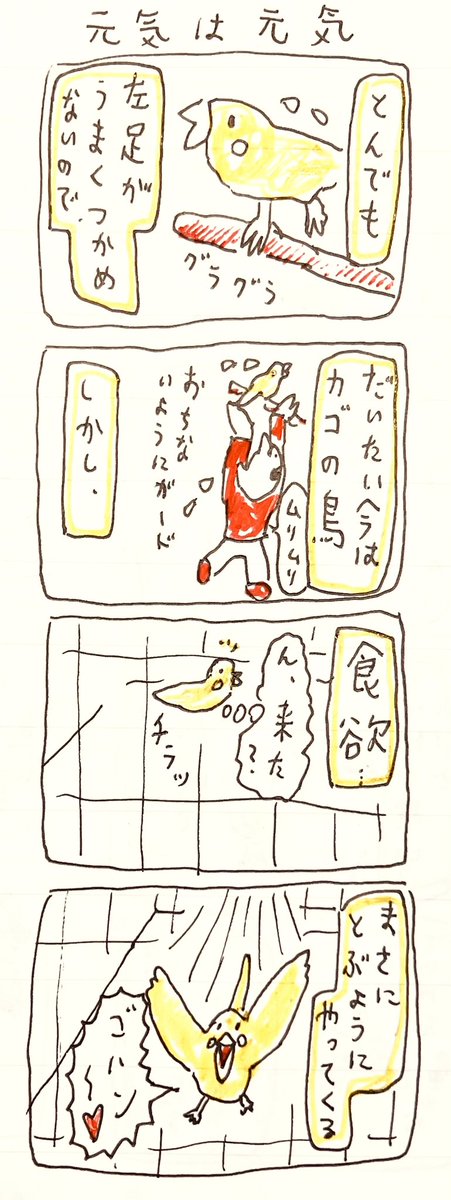 元気は元気
とんでも
左足が
うまくつかめ
ないので、
グラ
グラ
だいたいヘラは
カゴの鳥
ムリムリ
おちな
いようにガード
しかし、
食欲…
ん、来た?
チラッ
まさに
とぶように
やってくる
ゴハン
〜♥